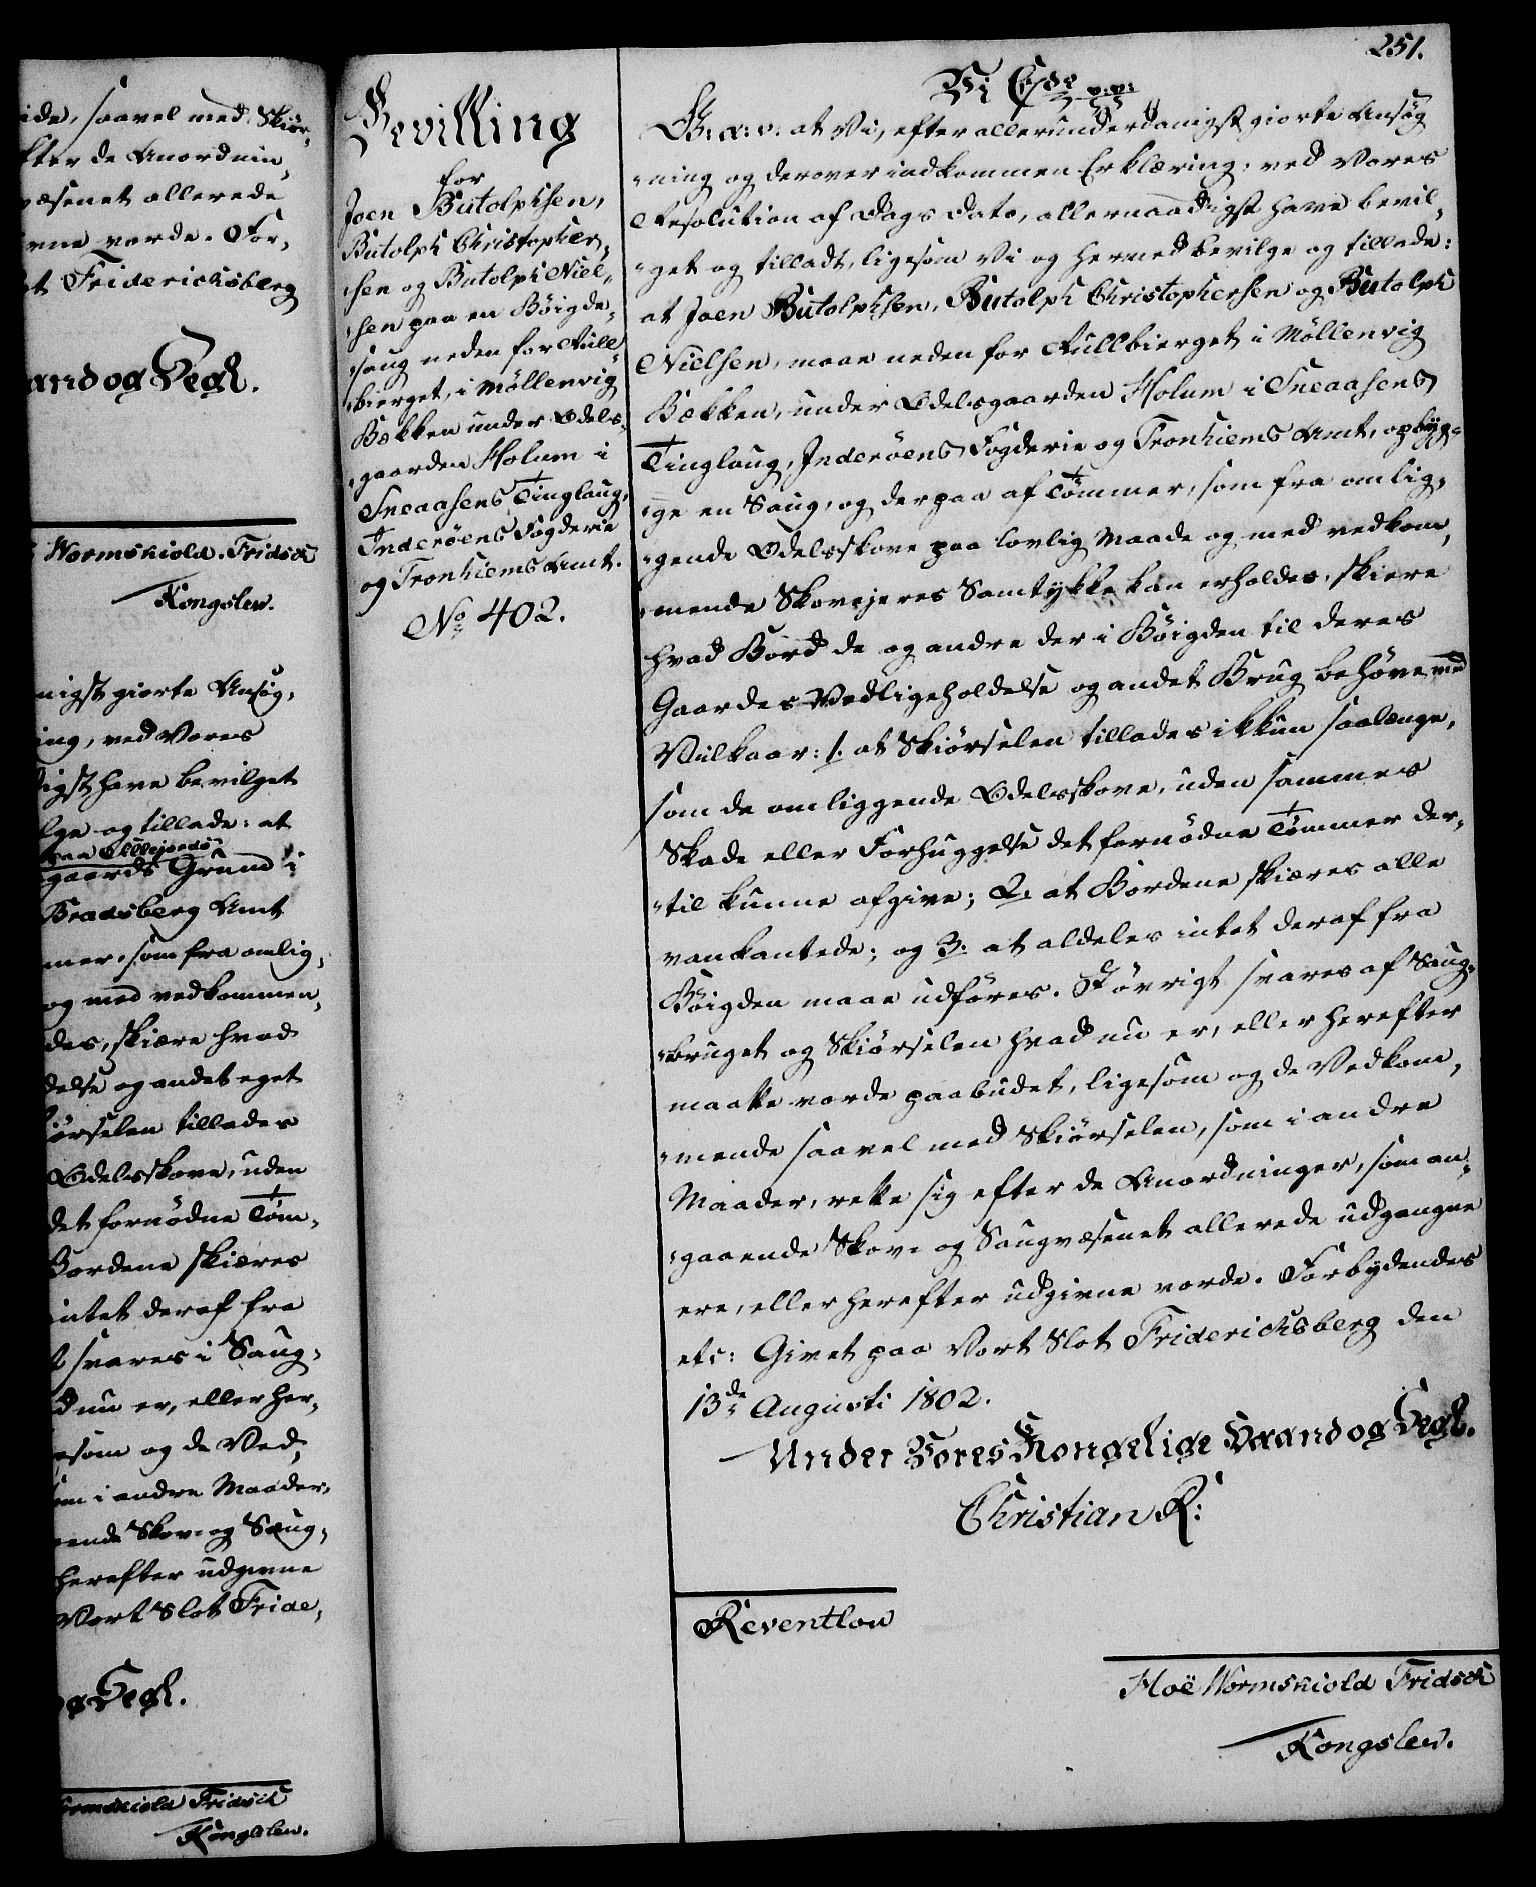 ide, saavel med Skiör-
fter de Anordnin-
væsenet allerede
ivne vorde. For-
ot Friderichsberg
aand og Segl.
Wormskiold. Fridsch
Kongslew.
nigst giorte Ansøg-
ing, ved Vores
digst have bevilget
lge og tillade: at
paa Ullejords
gaards Grund i
Bradsberg Amt
mer, som fra omlig-
og med vedkommen-
des, skiære hvad
delse og andet eget
iörselen tillades
Odelsskove, uden
det fornödne Töm-
Bordene skiæres
intet deraf fra
t svares i Saug-
d nu er, eller her-
esom og de Ved-
om i andre Maader,
aaende Skov- og Saug-
herefter udgivne
Vort Slot Fride-
og Segl.
ormskiold Fridsch
Kongslew.
Bevilling
for
Joen Butolphsen,
Butolph Christopher-
sen og Butolph Niel-
sen paa en Böigde-
saug neden for Aull-
bierget, i Möllenvig
Bækken under Odels-
gaarden Holum i
Sneaasens Tinglaug,
Inderöens Fogderie
og Tronhiems Amt.
No 402.
251.
Vi C 7de p:p:
G. a: v: at Vi, efter allerunderdanigst giorte Ansög-
ning og derover indkommen Erklæring, ved Vores
Resolution af Dags Dato, allernaadigst have bevil-
get og tilladt, ligesom Vi og hermed bevilge og tillade:
at Joen Butolphsen, Butolph Christophersen og Butolph
Nielsen, maae neden for Aullbierget i Möllenvig
Bækken, under Odelsgaarden Holum i Sneaasens
Tinglaug, Inderöens Fogderie og Tronhiems Amt, opbyg-
ge en Saug, og derpaa af Tömmer, som fra omlig-
gende Odelsskove paa lovlig Maade og med vedkom-
mende Skovejeres Samtykke kan erholdes, skiere
hvad Bord de og andre der i Böigden til deres
Gaardes Vedligeholdelse og andet Brug behöve, med
Vilkaar: 1. at Skiörselen tillades ikkun saalænge,
som de omliggende Odelsskove, uden sammes
Skade eller Forhuggelse det fornödne Tömmer der-
til kunne afgive; 2. at Bordene skiæres alle
vankantede; og 3. at aldeles intet deraf fra
Böigden maae udföres. I övrigt svares af Saug-
bruget og Skiörselen hvad nu er, eller herefter
maatte vorde paabudet, ligesom og de Vedkom-
mende saavel med Skiörselen, som i andre
Maader, rette sig efter de Anordninger, som an-
gaaende Skov- og Saugvæsenet allerede udgangne
ere, eller herefter udgivne vorde. Forbydendes
etc: Givet paa Vort Slot Friderichsberg den
13de Augusti 1802.
Under Vores Kongelige Haand og Segl.
Christian R:
Reventlow
Hoë Wormskiold Fridsch
Kongslew.